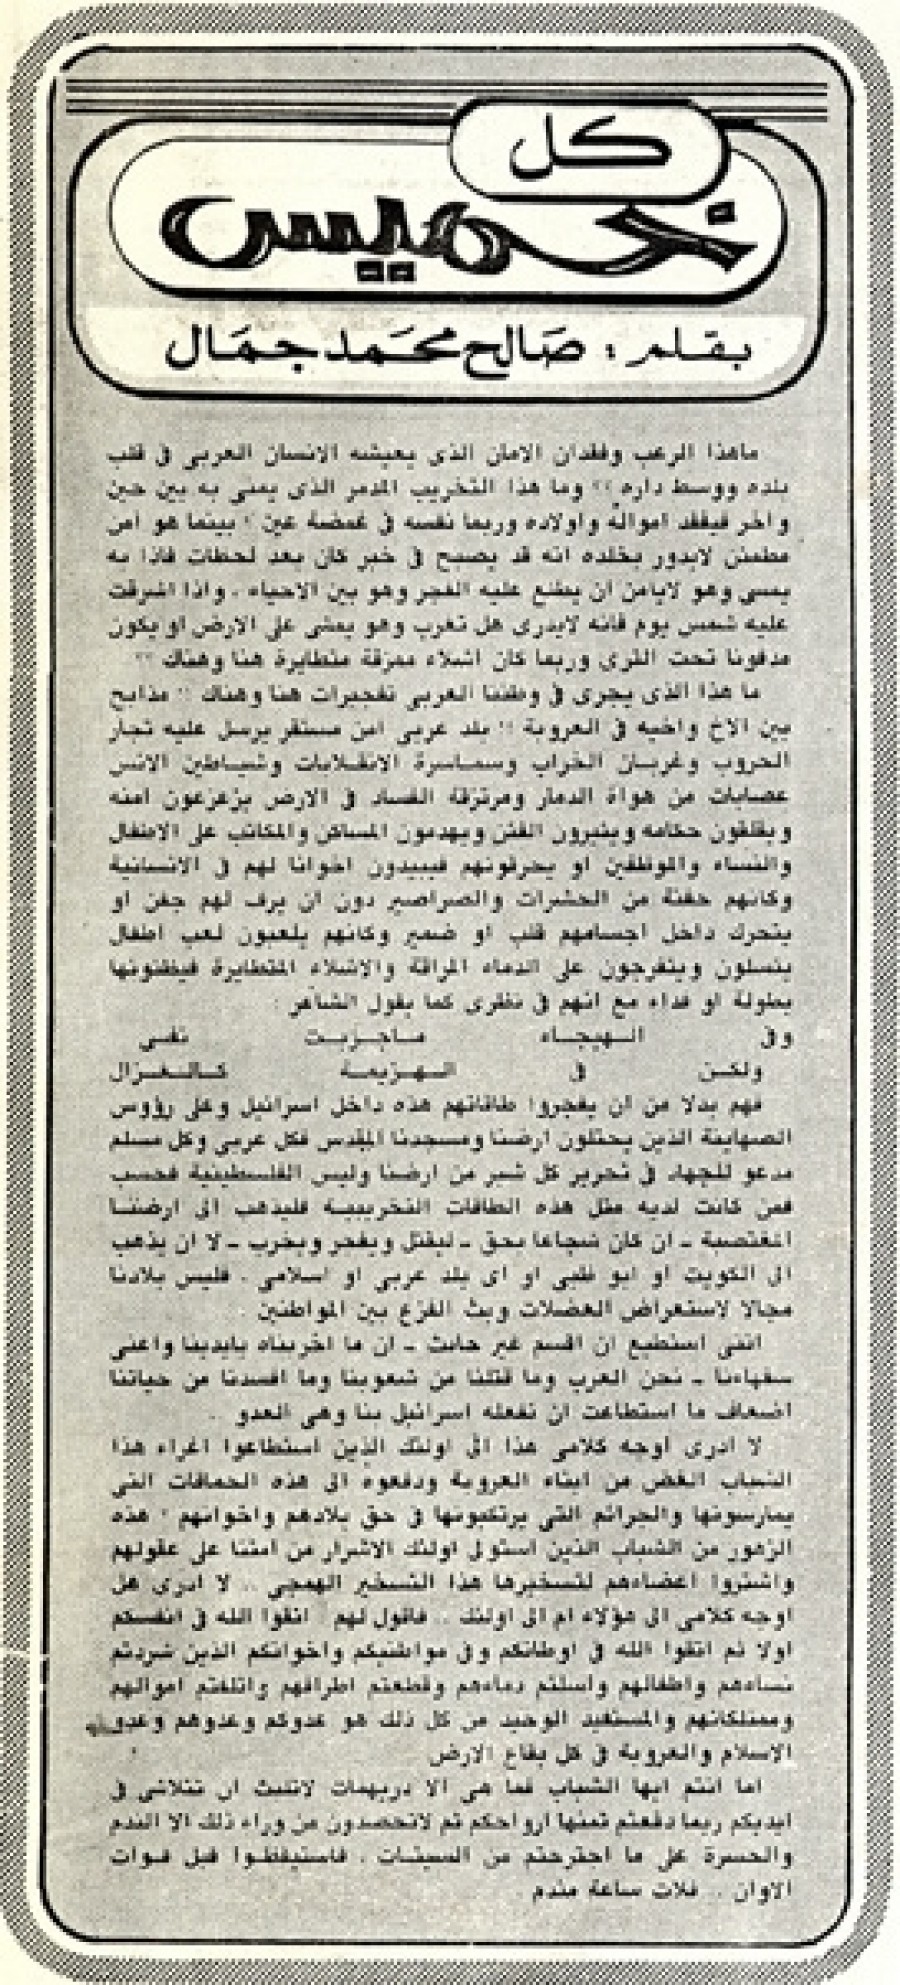 كل
خميس
بقلم : صالح محمد جمال
ماهذا الرعب وفقدان الامان الذى يعيشه الانسان العربى فى قلب
بلده ووسط داره ؟؟ وما هذا التخريب المدمر الذى يمنى به بين حين
وآخر فيفقد امواله واولاده وربما نفسه فى غمضة عين ؟ بينما هو آمن
مطمئن لايدور بخلده انه قد يصبح فى خبر كان بعد لحظات فاذا به
يمسى وهو لايأمن ان يطلع عليه الفجر وهو بين الاحياء . واذا اشرقت
عليه شمس يوم فانه لايدرى هل تغرب وهو يمشى على الارض او يكون
مدفونا تحت الثرى وربما كان اشلاء ممزقة متطايرة هنا وهناك ؟؟
ما هذا الذى يجرى فى وطننا العربى تفجيرات هنا وهناك !! مذابح
بين الاخ واخيه فى العروبة !! بلد عربى آمن مستقر يرسل عليه تجار
الحروب وغربان الخراب وسماسرة الانقلابات وشياطين الانس
عصابات من هواة الدمار ومرتزقة الفساد فى الارض يزعزعون امنه
ويقلقون حكامه ويثيرون الفتن ويهدمون المساكن والمكاتب على الاطفال
والنساء والموظفين او يحرقونهم فيبيدون اخوانا لهم فى الانسانية
وكأنهم حفنة من الحشرات والصراصير دون ان يرف لهم جفن او
يتحرك داخل اجسامهم قلب او ضمير وكأنهم يلعبون لعب اطفال
يتسلون ويتفرجون على الدماء المراقة والاشلاء المتطايرة فيظنونها
بطولة او فداء مع انهم فى نظرى كما يقول الشاعر :
وفى الهيجاء ماجربت نفسى
ولكن فى الهزيمة كالغزال
فهم بدلا من ان يفجروا طاقاتهم هذه داخل اسرائيل وعلى رؤوس
الصهاينة الذين يحتلون ارضنا ومسجدنا المقدس فكل عربى وكل مسلم
مدعو للجهاد فى تحرير كل شبر من ارضنا وليس الفلسطينية فحسب
فمن كانت لديه مثل هذه الطاقات التخريبية فليذهب الى ارضنا
المغتصبة - ان كان شجاعا بحق - ليقتل ويفجر ويخرب - لا ان يذهب
الى الكويت او ابو ظبى او اى بلد عربى او اسلامى . فليس بلادنا
مجالا لاستعراض العضلات وبث الفزع بين المواطنين .
اننى استطيع ان اقسم غير حانث - ان ما اخربناه بايدينا واعنى
سفهاءنا - نحن العرب وما قتلنا من شعوبنا وما افسدنا من حياتنا
اضعاف ما استطاعت ان تفعله اسرائيل بنا وهى العدو ..
لا ادرى أوجه كلامى هذا الى اولئك الذين استطاعوا اغراء هذا
الشباب الغض من ابناء العروبة ودفعوه الى هذه الحماقات التى
يمارسونها والجرائم التى يرتكبونها فى حق بلادهم واخوانهم ؟ هذه
الزهور من الشباب الذين استولى اولئك الاشرار من امتنا على عقولهم
واشتروا اعضاءهم لتسخيرها هذا التسخير الهمجى .. لا ادرى هل
اوجه كلامى الى هؤلاء ام الى اولئك .. فاقول لهم : اتقوا الله فى انفسكم
اولا ثم اتقوا الله فى اوطانكم وفى مواطنيكم واخوانكم الذين شردتم
نساءهم واطفالهم واسلتم دماءهم وقطعتم اطرافهم واتلفتم اموالهم
وممتلكاتهم والمستفيد الوحيد من كل ذلك هو عدوكم وعدوهم وعدو
الاسلام والعروبة فى كل بقاع الارض
اما انتم ايها الشباب فما هى الا دريهمات لاتلبث ان تتلاشى فى
ايديكم ربما دفعتم ثمنها ارواحكم ثم لاتحصدون من وراء ذلك الا الندم
والحسرة على ما اجترحتم من السيئات . فاستيقظوا قبل فوات
الاوان .. فلات ساعة مندم .